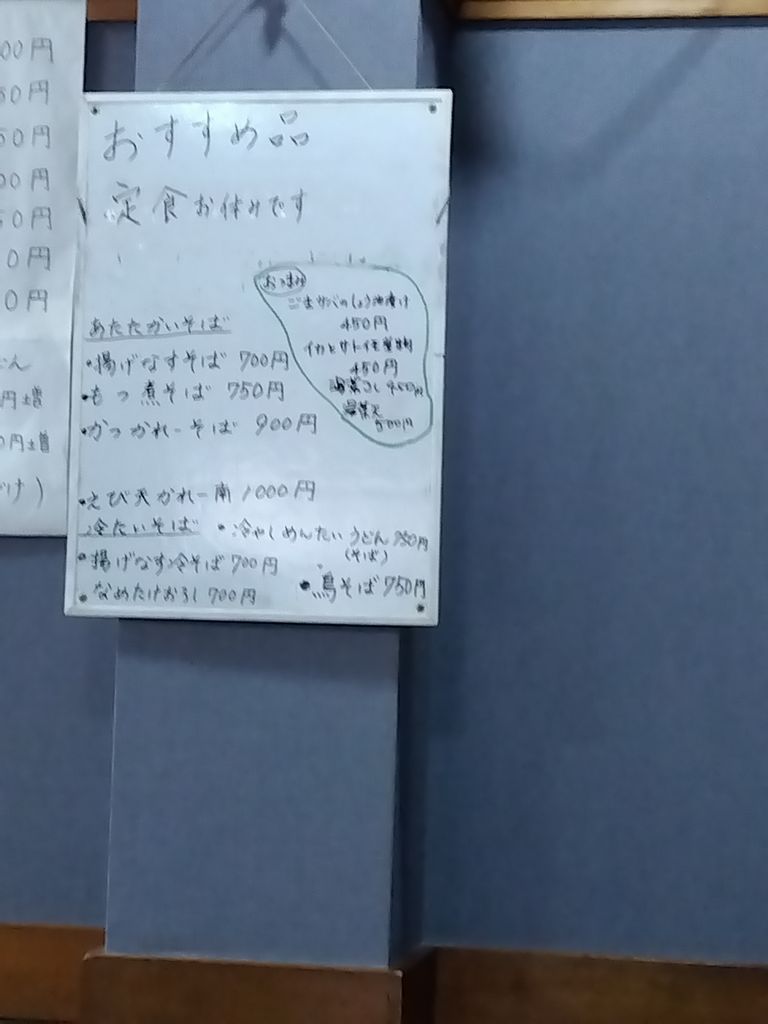 おすすめ品
定食お休みです
おつまみ
ごまサバのしょう油漬け
450円
イカとサトイモ煮物
450円
450円
500円
あたたかいそば
・揚げなすそば 700円
・もつ煮そば 750円
・かつカレーそば 900円
・えび天かれー南 1000円
冷たいそば
・冷やしめんたいうどん
(そば)
・揚げなす冷そば 700円
・鳥そば 750円
・なめたけおろし 700円
00円
50円
50円
00円
50円
0円
0円
どん
円増
0円増